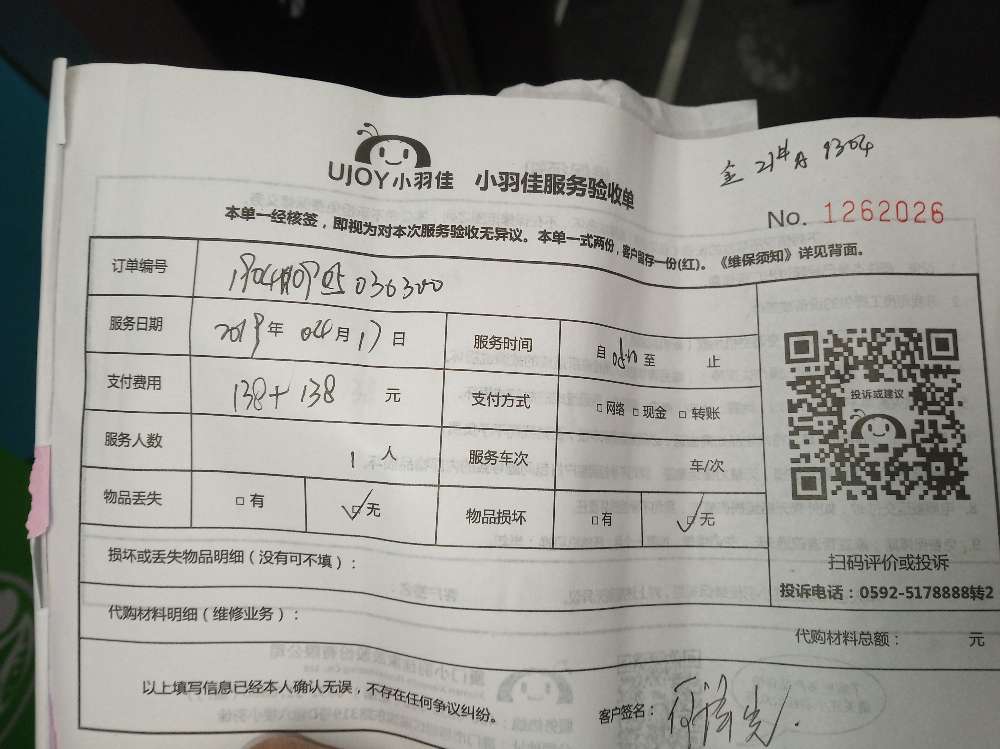 UJOY小羽佳 小羽佳服务验收单
No. 1262026
本单一经核签，即视为对本次服务验收无异议。本单一式两份，客户留存一份(红)。《维保须知》详见背面。
订单编号 036300
服务日期 2019年 04月17日 服务时间 自 至 止
支付费用 138+138 元 支付方式 □网络 □现金 □转账
服务人数 1人 服务车次 车/次
物品丢失 □有 ☑无 物品损坏 □有 ☑无
投诉或建议
扫码评价或投诉
投诉电话：0592-5178888转2
损坏或丢失物品明细（没有可不填）：
代购材料明细（维修业务）：
代购材料总额： 元
以上填写信息已经本人确认无误，不存在任何争议纠纷。
客户签名：